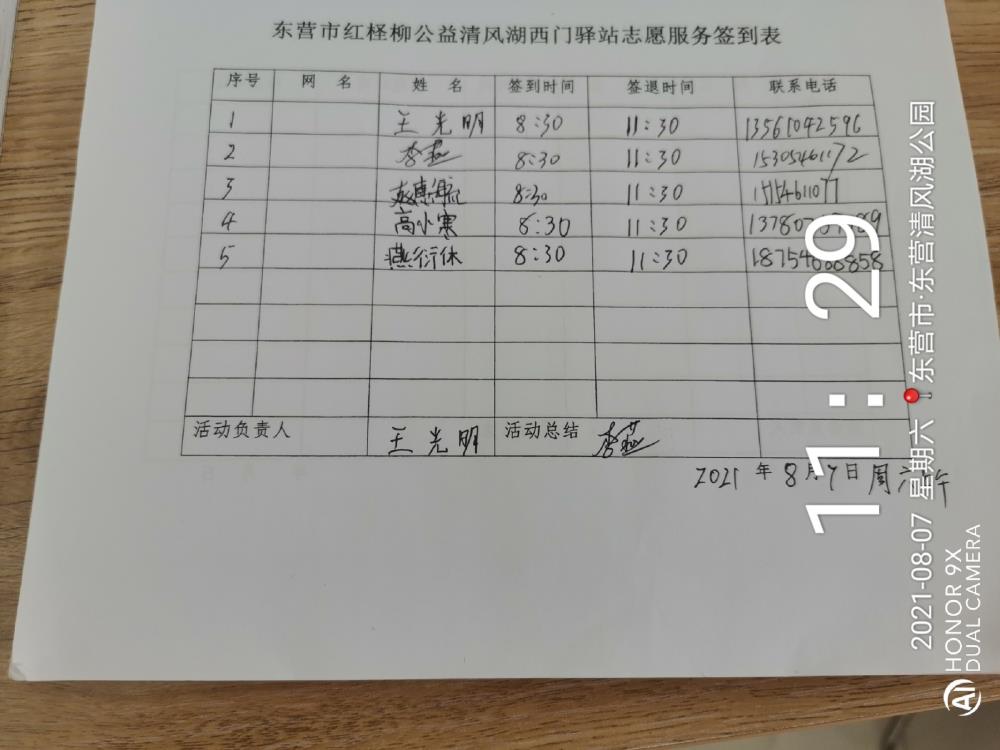 东营市红柽柳公益清风湖西门驿站志愿服务签到表
序号 网 名 姓 名 签到时间 签退时间 联系电话
1 王光明 8:30 11:30 13561042596
2 李燕 8:30 11:30 15305461172
3 8:30 11:30
4 高小寒 8:30 11:30
5 燕衍休 8:30 11:30
活动负责人 王光明 活动总结 李燕
2021年8月7日周六
11:29
2021-08-07 星期六 东营市·东营清风湖公园
HONOR 9X
DUAL CAMERA
AI